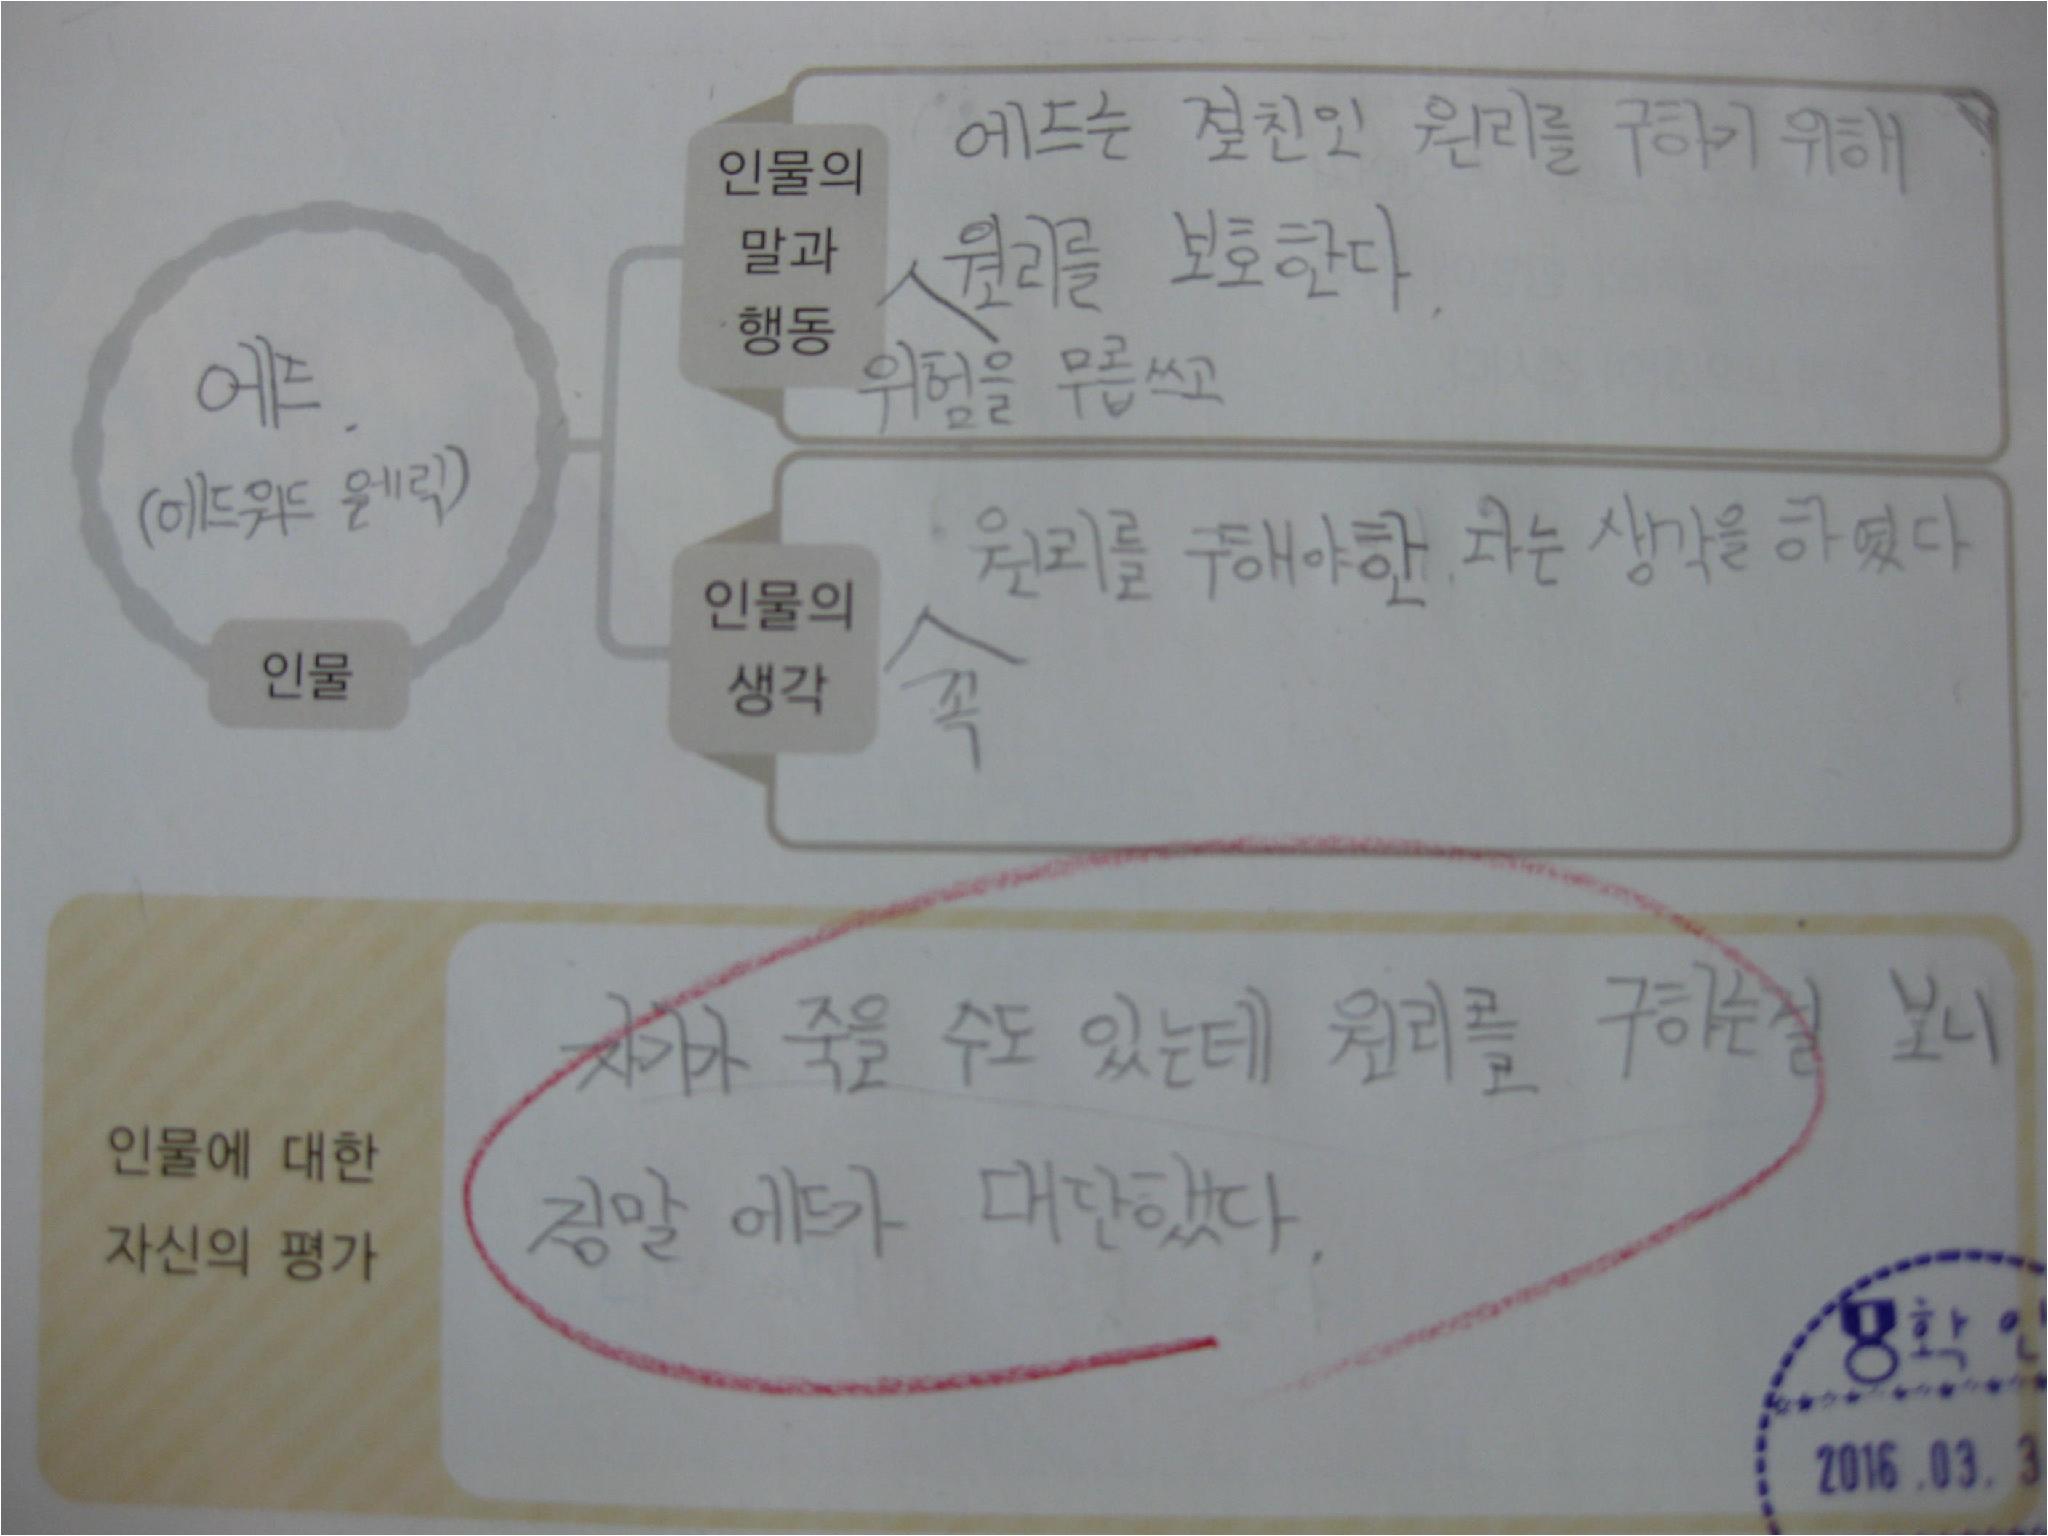 에드.
(에드워드 엘릭)
인물
인물의
말과
행동
에드는 절친인 윈리를 구하기 위해
윈리를 보호한다.
위험을 무릅쓰고
인물의
생각
윈리를 구해야한다는 생각을 하였다
꼭
인물에 대한
자신의 평가
자기가 죽을 수도 있는데 윈리를 구하는걸 보니
정말 에드가 대단했다.
확인
2016.03.3